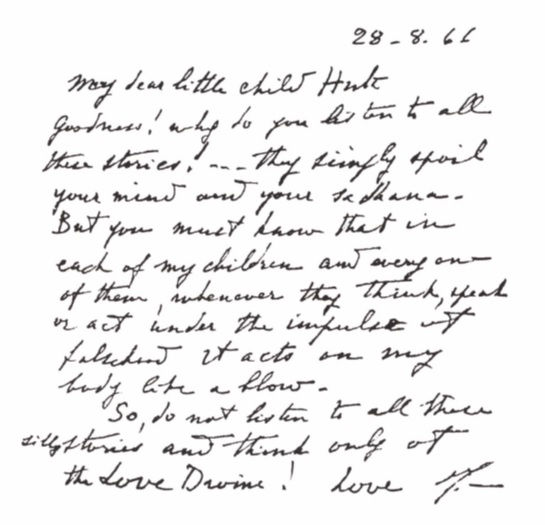 28-8.61
My dear little child Huta
Goodness! why do you listen to all
these stories! --- they simply spoil
your mind and your sadhana.
But you must know that in
each of my children and every one
of them, whenever they think, speak
or act under the impulse of
falsehood it acts on my
body like a blow.
So, do not listen to all these
silly stories and think only of
the Love Divine! Love